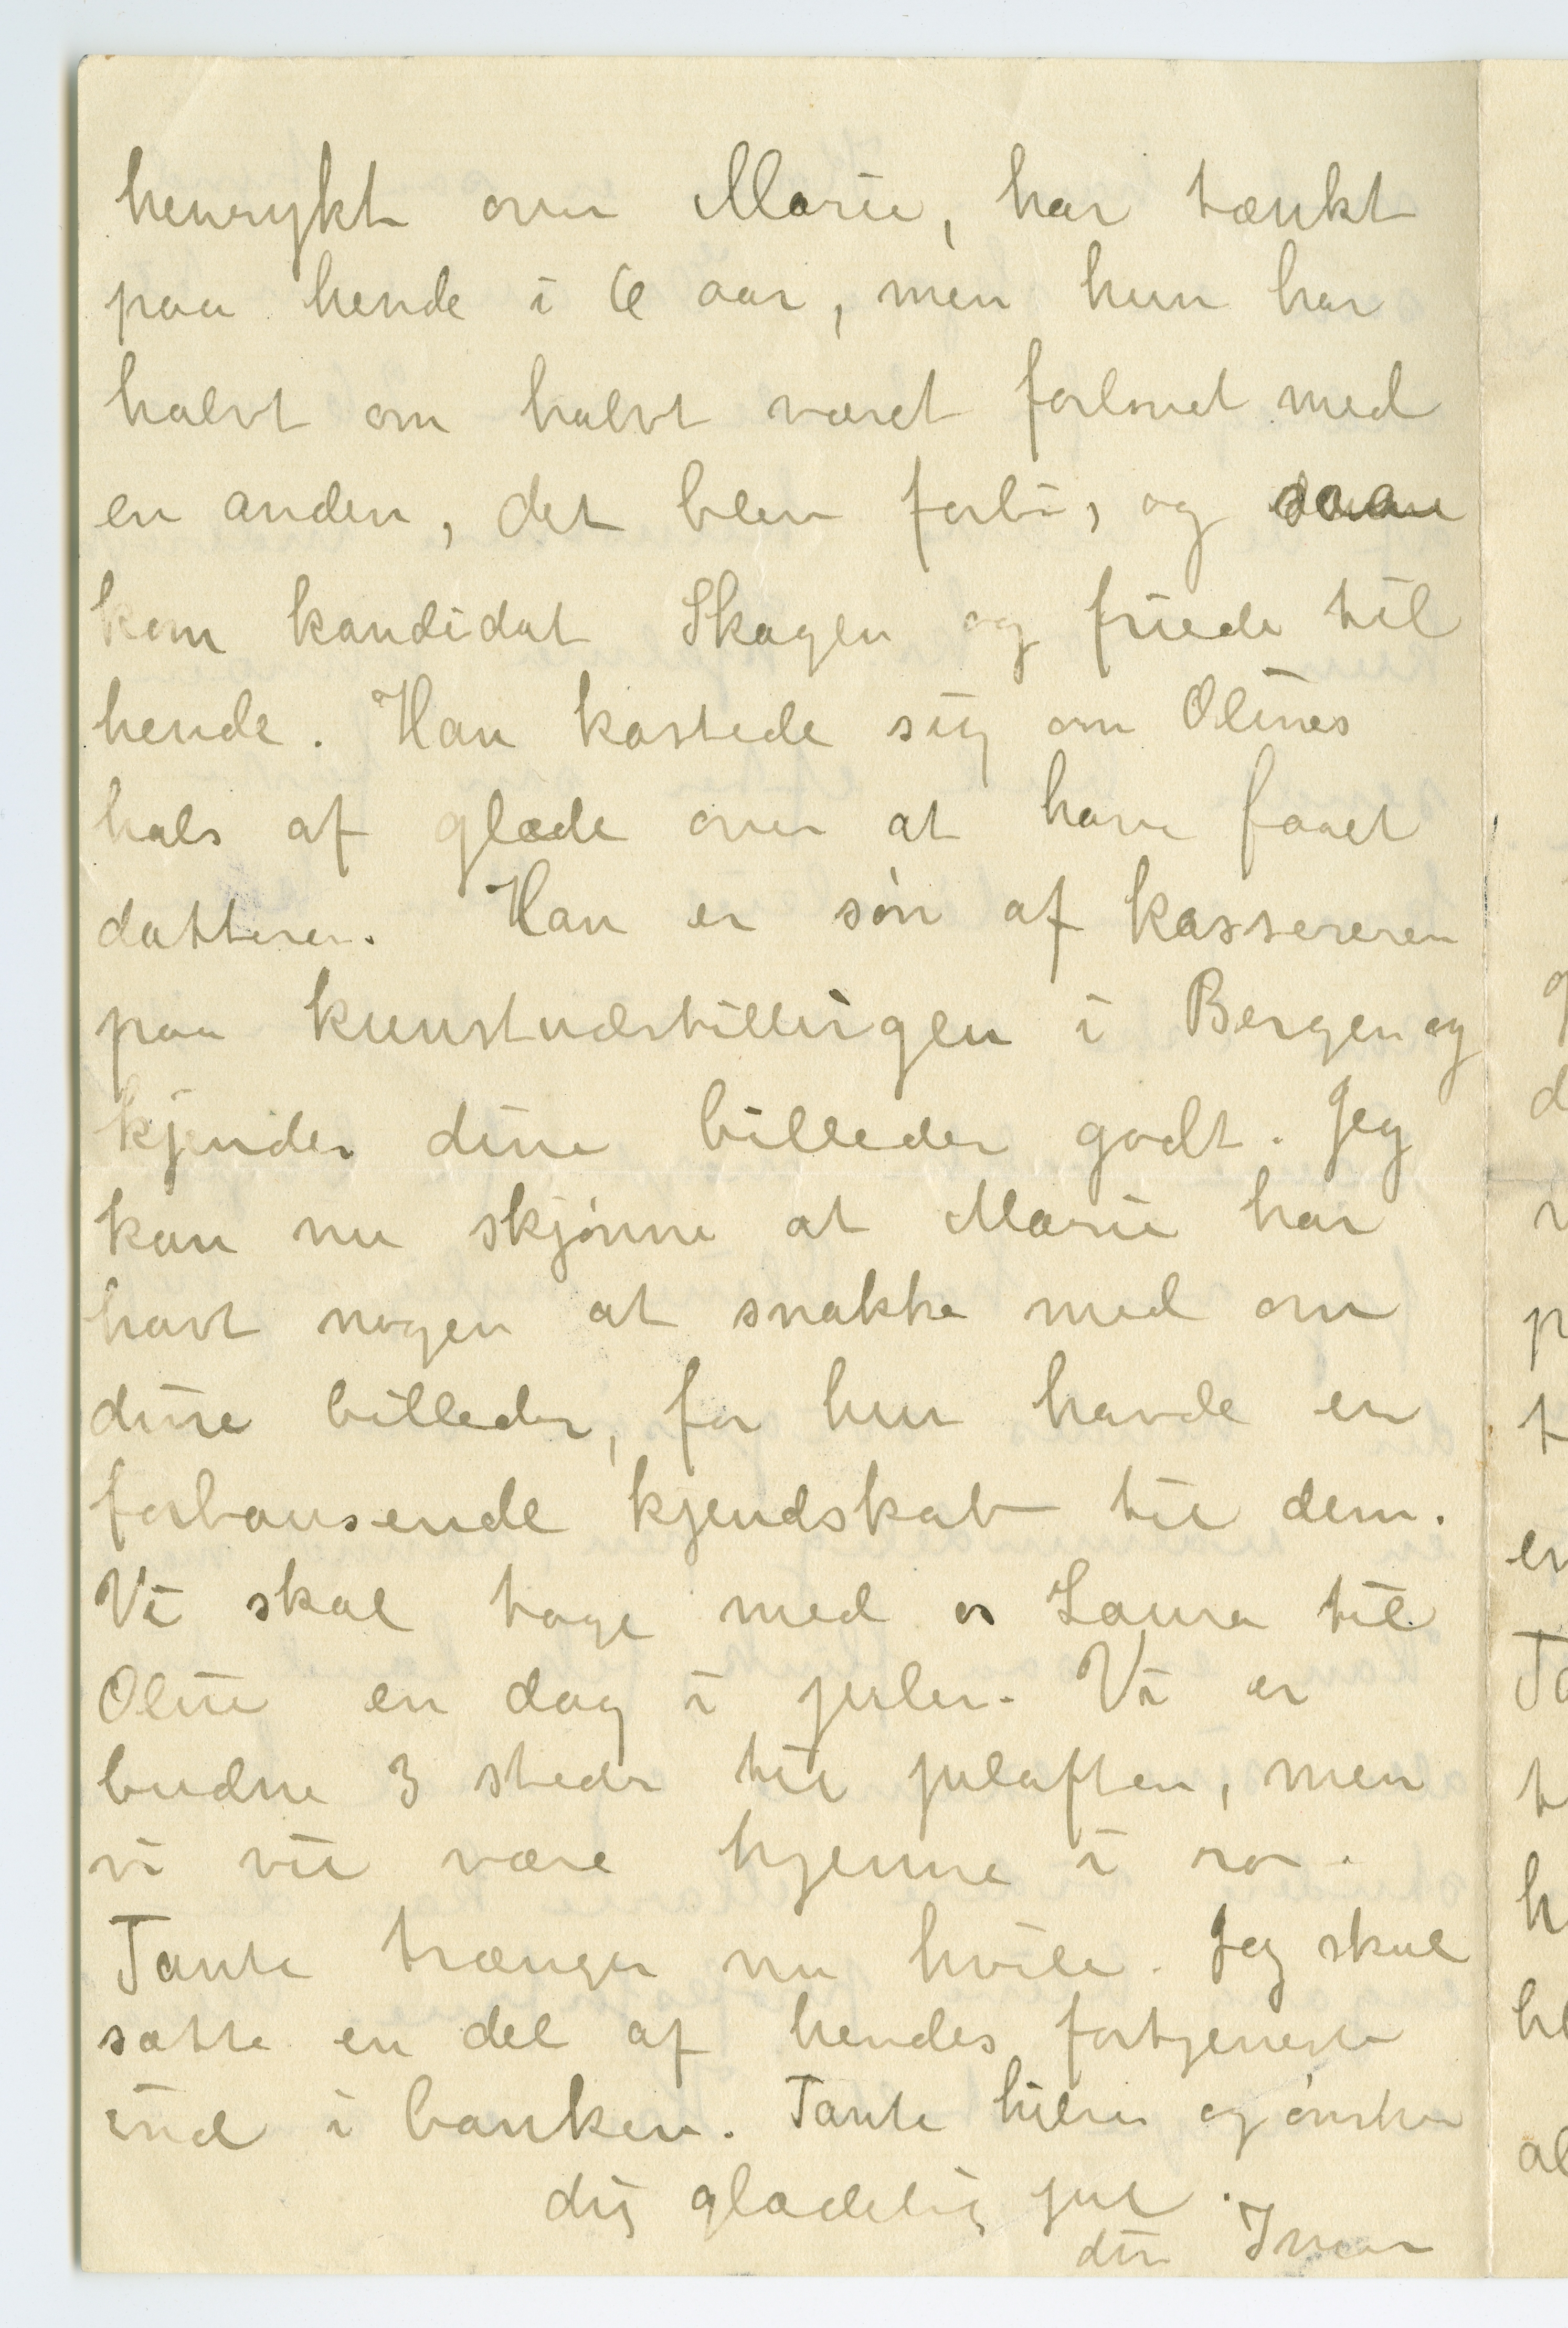 henrykt over Marie, har tænkt
paa hende i 6 aar, men hun har
halvt om halvt været forlovet med
en anden, det blev forbi, og saa
kom kandidat Skagen og friede til
hende. Han kastede sig om Olines
hals af glæde over at have faaet
datteren. Han er søn af kassereren
paa kunstudstillingen i Bergen og
kjender dine billeder godt. Jeg
kan nu skjønne at Marie har
havt nogen at snakke med om
dine billeder, for hun havde en
forbausende kjendskab til dem.
Vi skal tage med os Laura til
Oline en dag i julen. Vi er
budne 3 steder til julaften, men
vi vil være hjemme i ro.
Tante trænger nu hvile. Jeg skal
sætte en del af hendes fortjeneste
ind i banken. Tante hilser og ønsker
dig glædelig jul.
din Inger